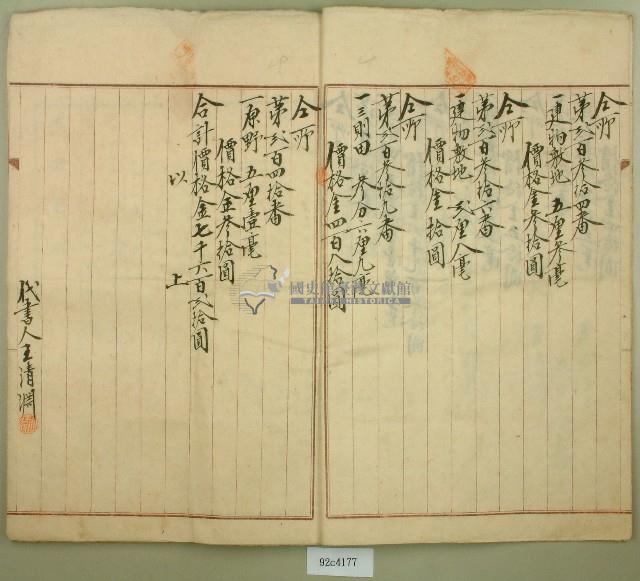 仝所
第貳百参拾四番
一建物敷地 五厘参毫
價格金参拾圓
仝所
第貳百参拾六番
一建物敷地 貳厘八毫
價格金拾圓
仝所
第貳百参拾九番
一三則田 参分六厘九毫
價格金四百八拾圓
仝所
第貳百四拾番
一原野 五厘壹毫
價格金参拾圓
合計價格金七千六百貳拾圓
以上
代書人王清淵
國史館臺灣文獻館
TAIWAN HISTORICA
92c4177